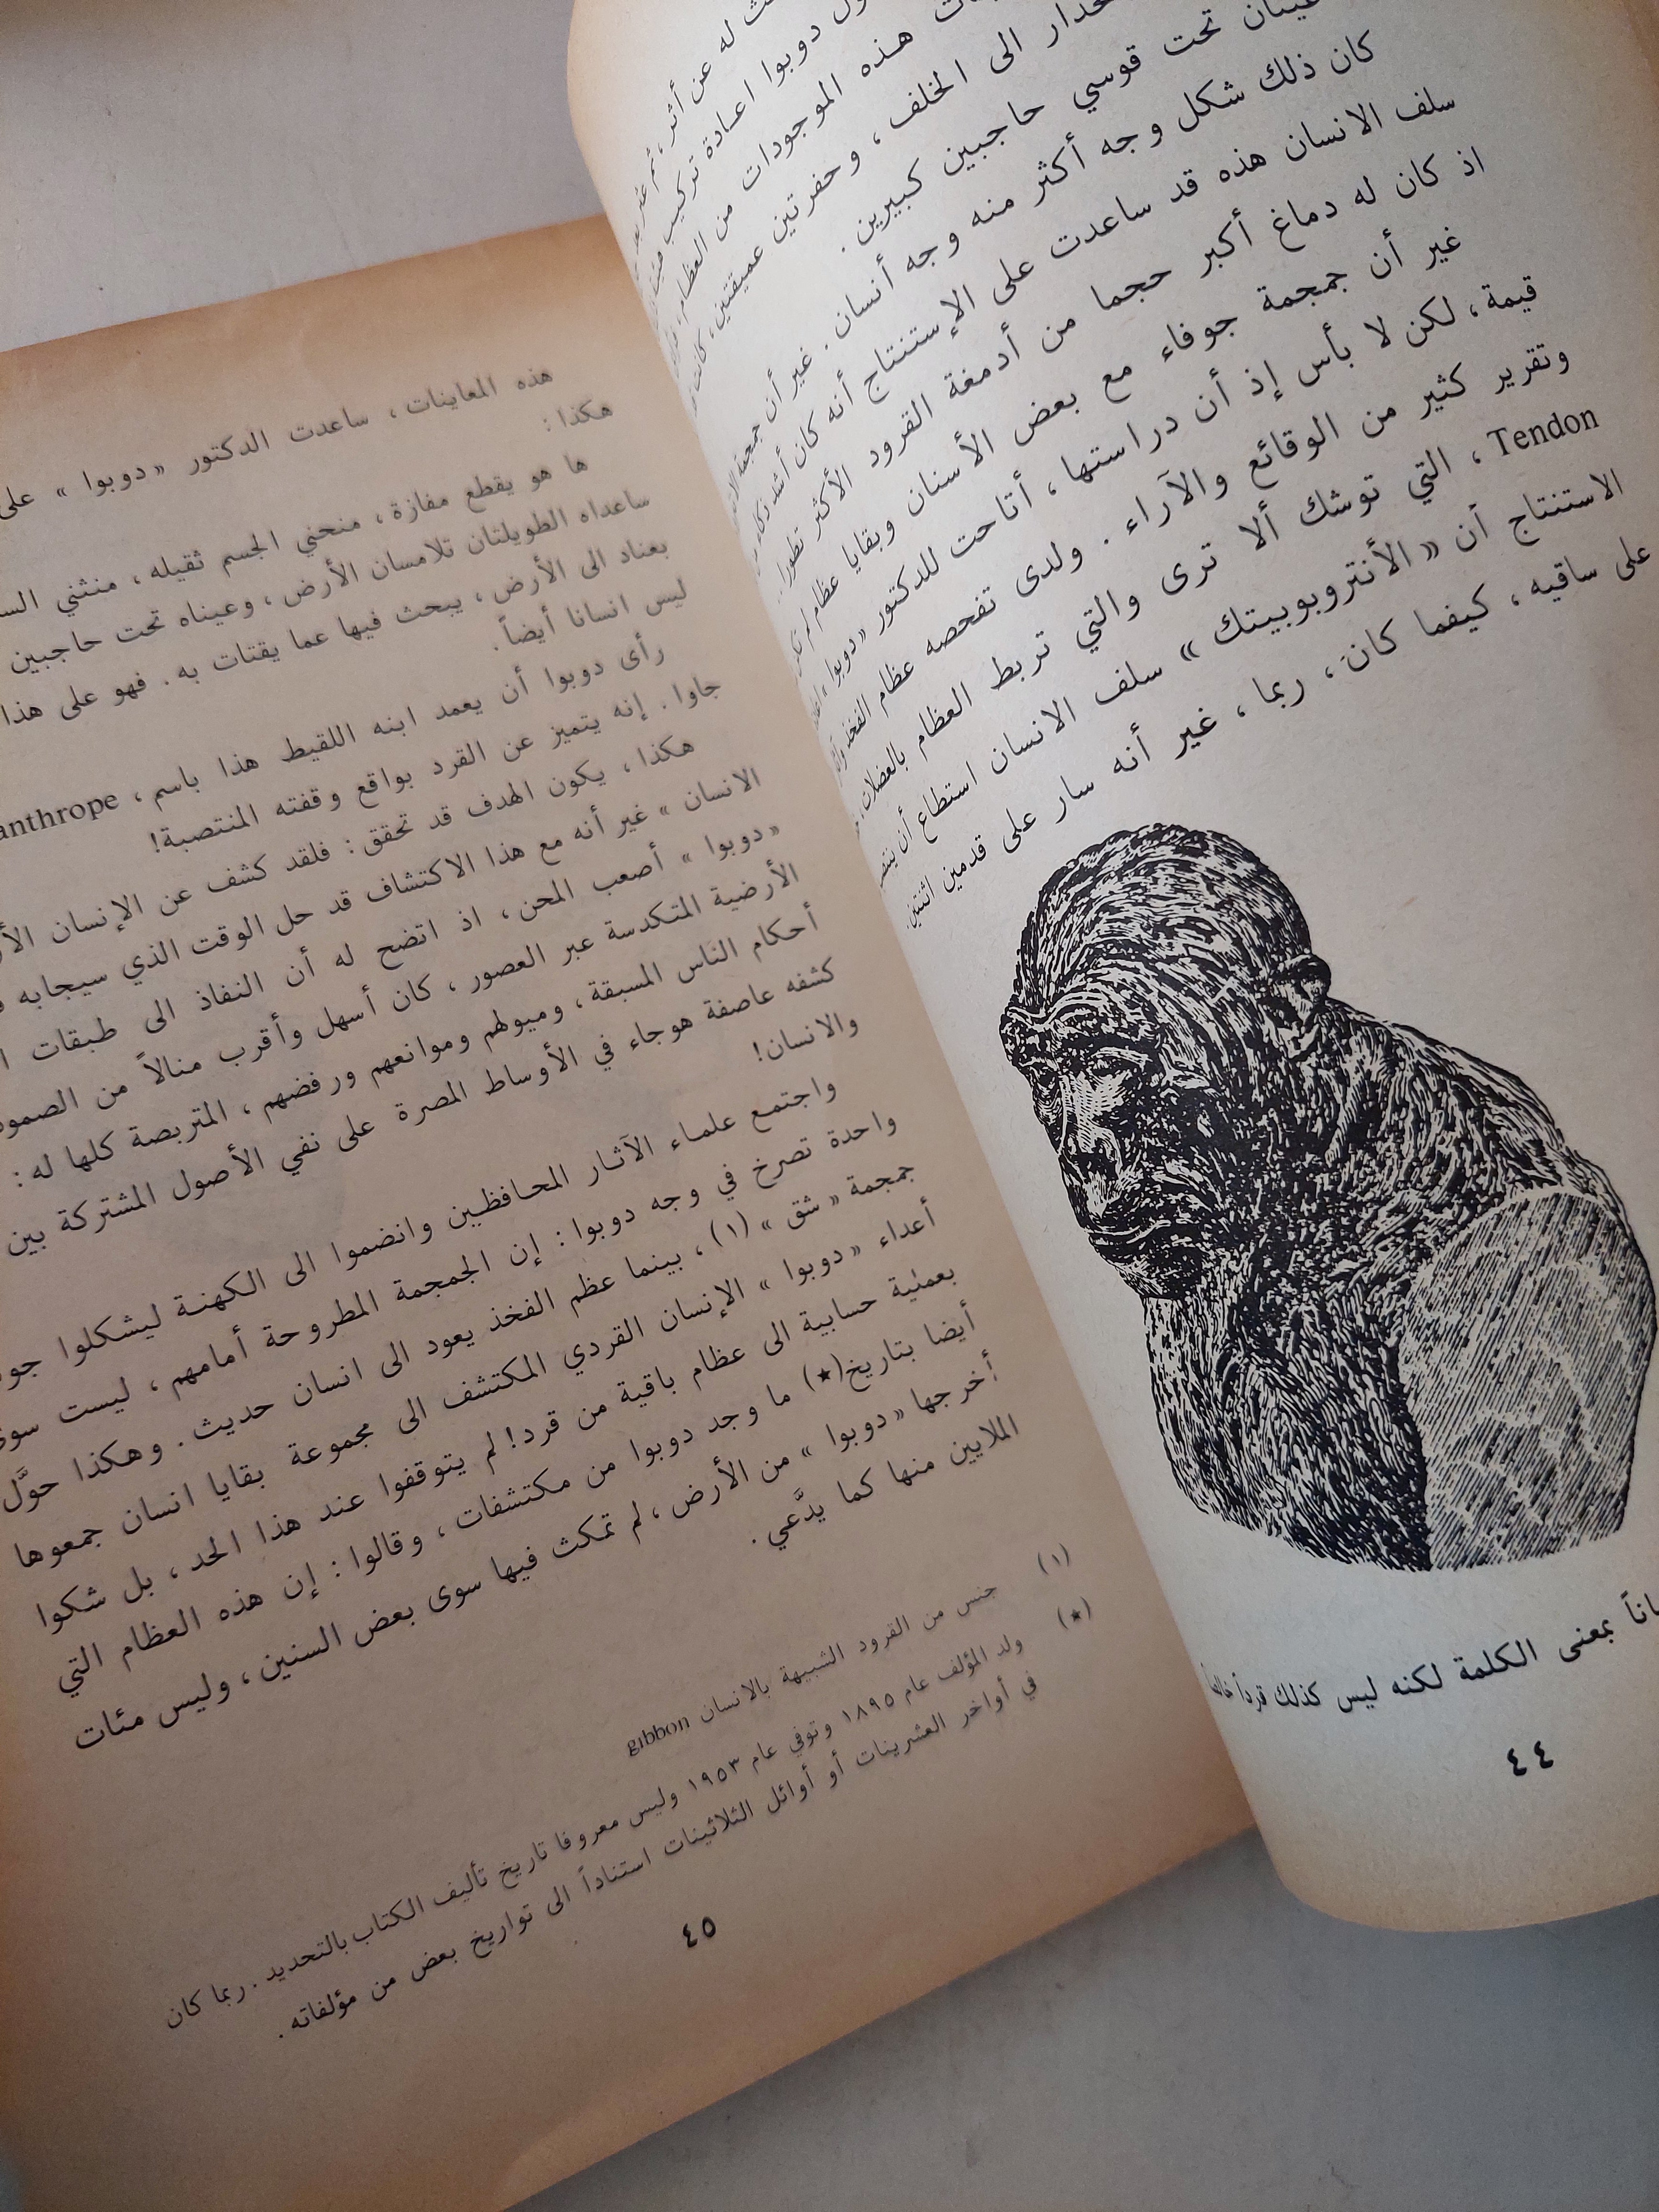 له عن أثر، ثم عثر بعد
دوبوا اعادة تركيب
هذه الموجودات من العظام،
الى الخلف، وحفرتين عميقتين، كانت
تحت قوسي حاجبين كبيرين.
كان ذلك شكل وجه أكثر منه وجه أنسان. غير أن جمجمة
سلف الانسان هذه قد ساعدت على الإستنتاج أنه كان أشد ذكاء من
اذ كان له دماغ أكبر حجما من أدمغة القرود الأكثر تطورا...
غير أن جمجمة جوفاء مع بعض الأسنان وبقايا عظام لم تكن
قيمة، لكن لا بأس إذ أن دراستها، أتاحت للدكتور «دوبوا»
وتقرير كثير من الوقائع والآراء. ولدى تفحصه عظام الفخذ
Tendon، التي توشك ألا ترى والتي تربط العظام بالعضلات،
الاستنتاج أن «الأنتروبوبيتك» سلف الانسان استطاع أن
على ساقيه، كيفما كان، ربما، غير أنه سار على قدمين اثنتين.
بمعنى الكلمة لكنه ليس كذلك قرداً
٤٤
هذه المعاينات، ساعدت الدكتور «دوبوا» على
هكذا:
ها هو يقطع مفازة، منحني الجسم ثقيله، منثني
ساعداه الطويلتان تلامسان الأرض، وعيناه تحت حاجبين
بعناد الى الأرض، يبحث فيها عما يقتات به. فهو على هذا
ليس انسانا أيضاً.
رأى دوبوا أن يعمد ابنه اللقيط هذا باسم،
جاوا. إنه يتميز عن القرد بواقع وقفته المنتصبة!
هكذا، يكون الهدف قد تحقق: فلقد كشف عن الإنسان
الانسان» غير أنه مع هذا الاكتشاف قد حل الوقت الذي سيجابه
«دوبوا» أصعب المحن، اذ اتضح له أن النفاذ الى طبقات
الأرضية المتكدسة عبر العصور، كان أسهل وأقرب منالاً من
أحكام الناس المسبقة، وميولهم وموانعهم ورفضهم، المتربصة كلها له:
كشفه عاصفة هوجاء في الأوساط المصرة على نفي الأصول المشتركة بين
والانسان!
واجتمع علماء الآثار المحافظين وانضموا الى الكهنة ليشكلوا
واحدة تصرخ في وجه دوبوا: إن الجمجمة المطروحة أمامهم، ليست سوى
جمجمة «شق» (١)، بينما عظم الفخذ يعود الى انسان حديث. وهكذا حوَّل
أعداء «دوبوا» الإنسان القردي المكتشف الى مجموعة بقايا انسان جمعوها
بعملية حسابية الى عظام باقية من قرد! لم يتوقفوا عند هذا الحد، بل شكوا
أيضا بتاريخ(★) ما وجد دوبوا من مكتشفات، وقالوا: إن هذه العظام التي
أخرجها «دوبوا» من الأرض، لم تمكث فيها سوى بعض السنين، وليس مئات
الملايين منها كما يدَّعي.
(١) جنس من القرود الشبيهة بالانسان gibbon
(★) ولد المؤلف عام ١٨٩٥ وتوفي عام ١٩٥٣ وليس معروفا تاريخ تأليف الكتاب بالتحديد. ربما كان
في أواخر العشرينات أو أوائل الثلاثينات استناداً الى تواريخ بعض من مؤلفاته.
٤٥